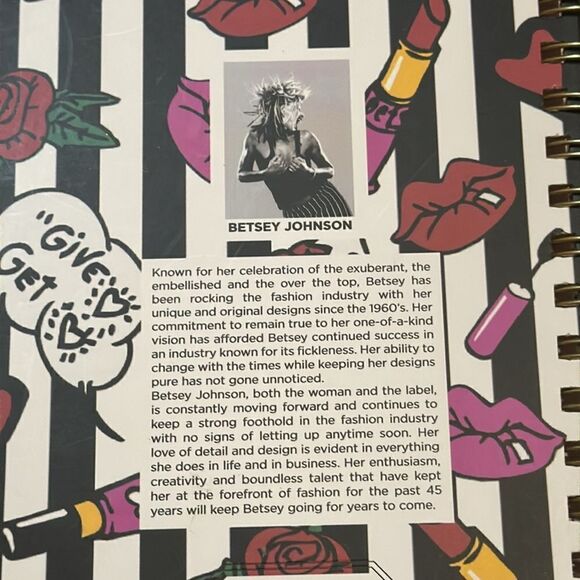 BETSEY JOHNSON
"GIVE
GET
Known for her celebration of the exuberant, the
embellished and the over the top, Betsey has
been rocking the fashion industry with her
unique and original designs since the 1960's. Her
commitment to remain true to her one-of-a-kind
vision has afforded Betsey continued success in
an industry known for its fickleness. Her ability to
change with the times while keeping her designs
pure has not gone unnoticed.
Betsey Johnson, both the woman and the label,
is constantly moving forward and continues to
keep a strong foothold in the fashion industry
with no signs of letting up anytime soon. Her
love of detail and design is evident in everything
she does in life and in business. Her enthusiasm,
creativity and boundless talent that have kept
her at the forefront of fashion for the past 45
years will keep Betsey going for years to come.